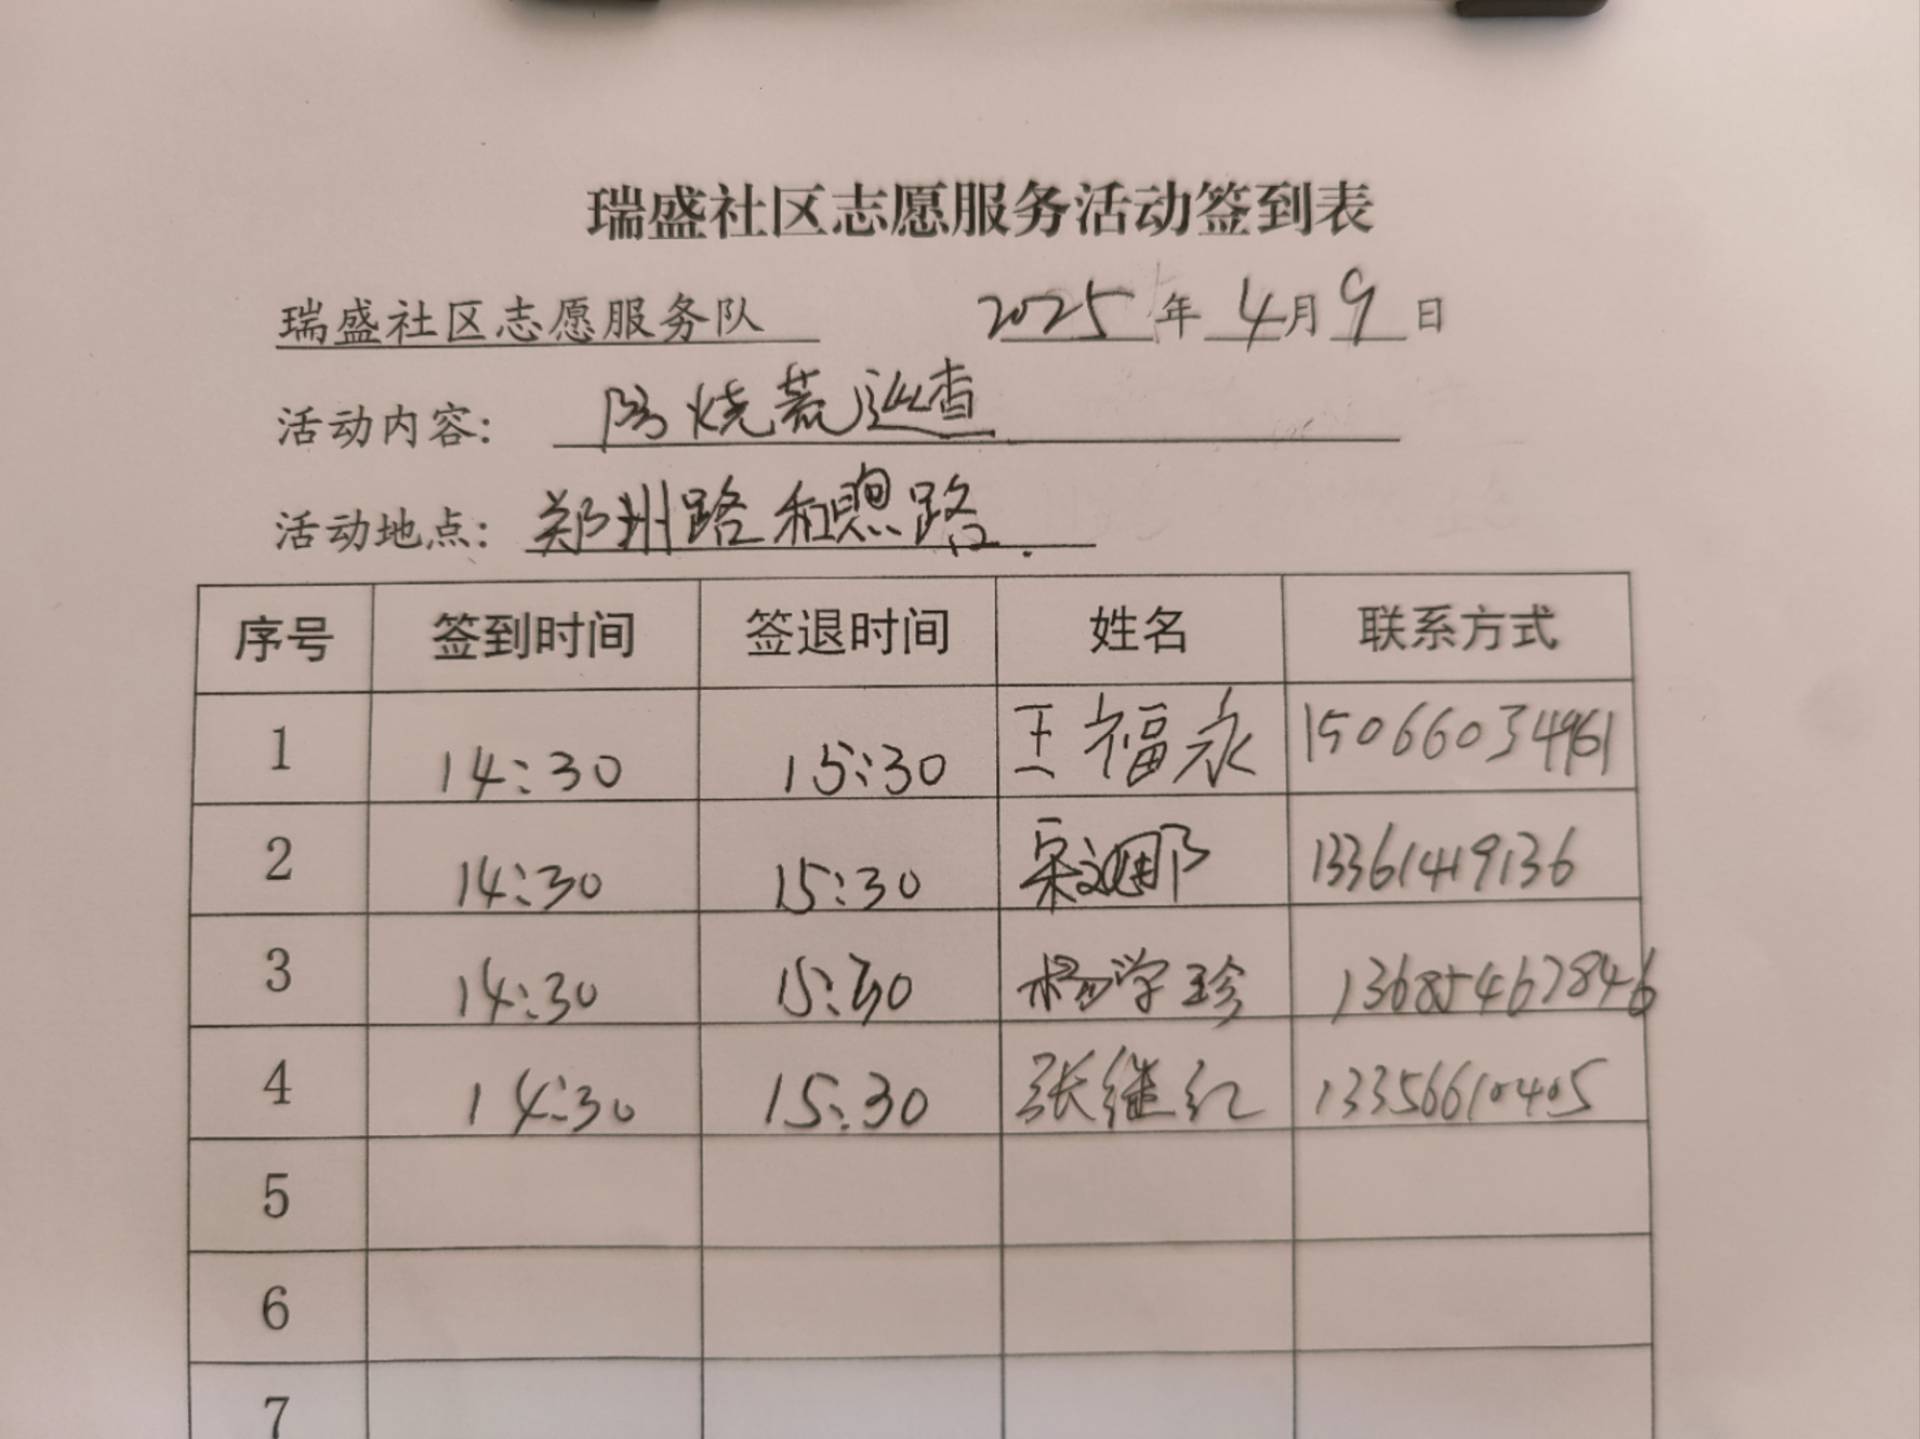 瑞盛社区志愿服务活动签到表
瑞盛社区志愿服务队 2025年4月9日
活动内容: 防烧荒巡查
活动地点: 郑州路和聰路.
序号 签到时间 签退时间 姓名 联系方式
1 14:30 15:30 王福永 15066034961
2 14:30 15:30 13361419136
3 14:30 15:30 杨学珍 13685467846
4 14:30 15:30 张继红 13356610405
5
6
7